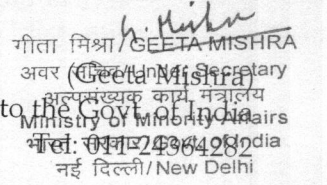 गीता मिश्रा/GEETA MISHRA
अवर सचिव/Under Secretary
(Geeta Mishra)
अल्पसंख्यक कार्य मंत्रालय
to the Govt. of India
Ministry of Minority Affairs
भारत सरकार/Govt. of India
Tel: 011-24364282
नई दिल्ली/New Delhi